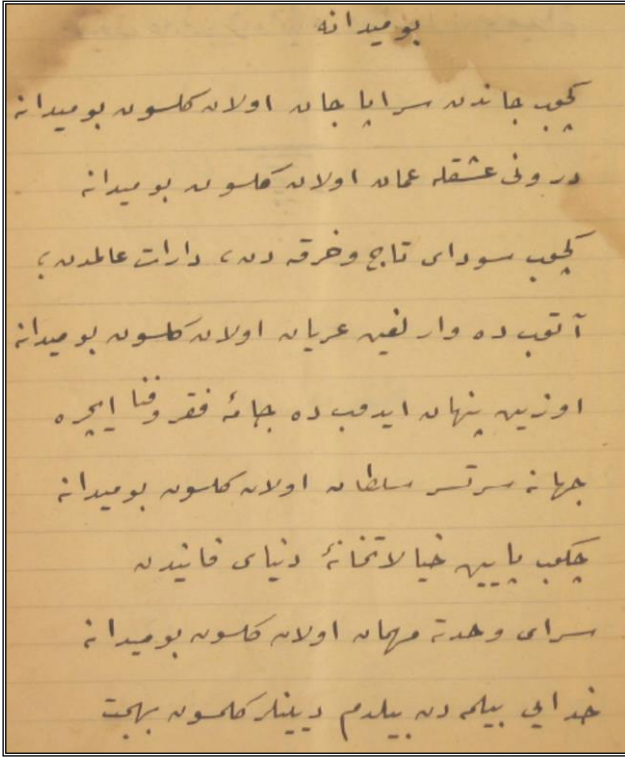 بو میدانه
كچوب جاندن سراپا جان اولان كلسون بو میدانه
درونی عشقله عمان اولان كلسون بو میدانه
كچوب سودای تاج و خرقه دن، دارات عالمدن،
آتوب ده وارلغین عریان اولان كلسون بو میدانه
اوزین پنهان ایدوب ده جامهٔ فقر و فنا ایچره
جهانه سرتسر سلطان اولان كلسون بو میدانه
چكوب پایین خیالاتخانهٔ دنیای فانیدن
سرای وحدته مهمان اولان كلسون بو میدانه
خدایی بیلمه دن بیلدم دیینلر كلمسون بهجت